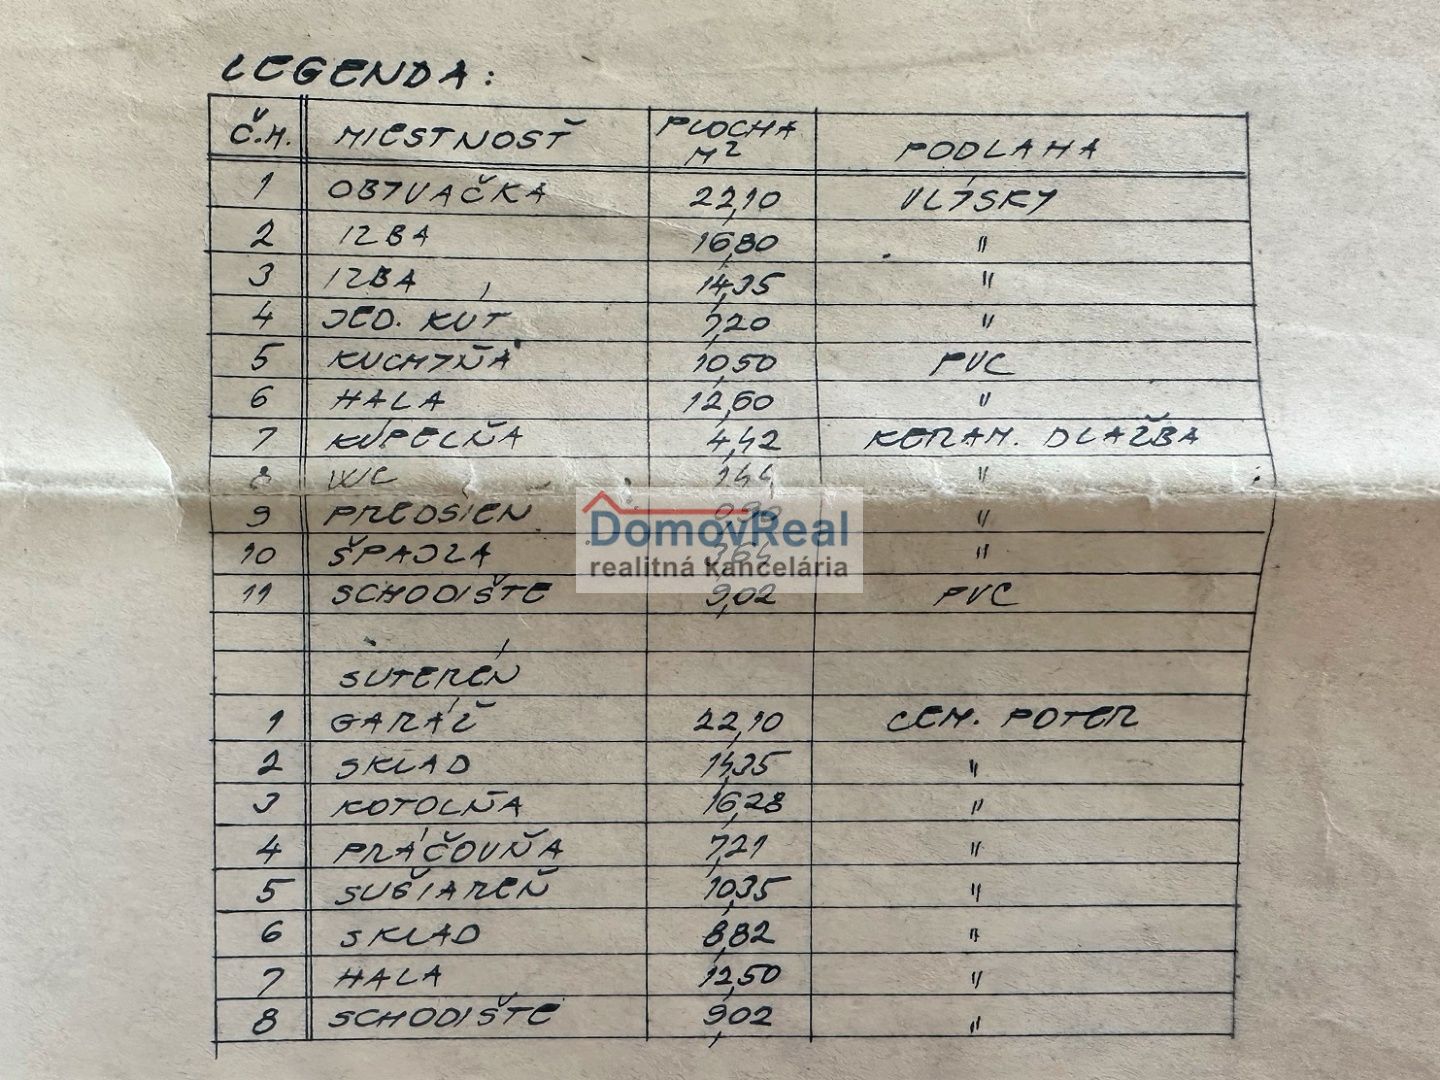 LEGENDA:
Č.M. MIESTNOSŤ PLOCHA M² PODLAHA
1 OBYVAČKA 22,10 VLÝSKY
2 IZBA 16,80 "
3 IZBA 14,35 "
4 JED. KÚT 7,20 "
5 KUCHYŇA 10,50 PVC
6 HALA 12,60 "
7 KÚPELŇA 4,42 KERAM. DLAŽBA
8 WC 1,44 "
9 PREDSIEŇ "
10 ŠPAJZA "
11 SCHODIŠTE 9,02 PVC
DomovReal
realitná kancelária
SUTERÉN
1 GARÁŽ 22,10 CEM. POTER
2 SKLAD 14,35 "
3 KOTOLŇA 16,28 "
4 PRÁČOVŇA 7,21 "
5 SUŠIAREŇ 10,35 "
6 SKLAD 8,82 "
7 HALA 12,50 "
8 SCHODIŠTE 9,02 "